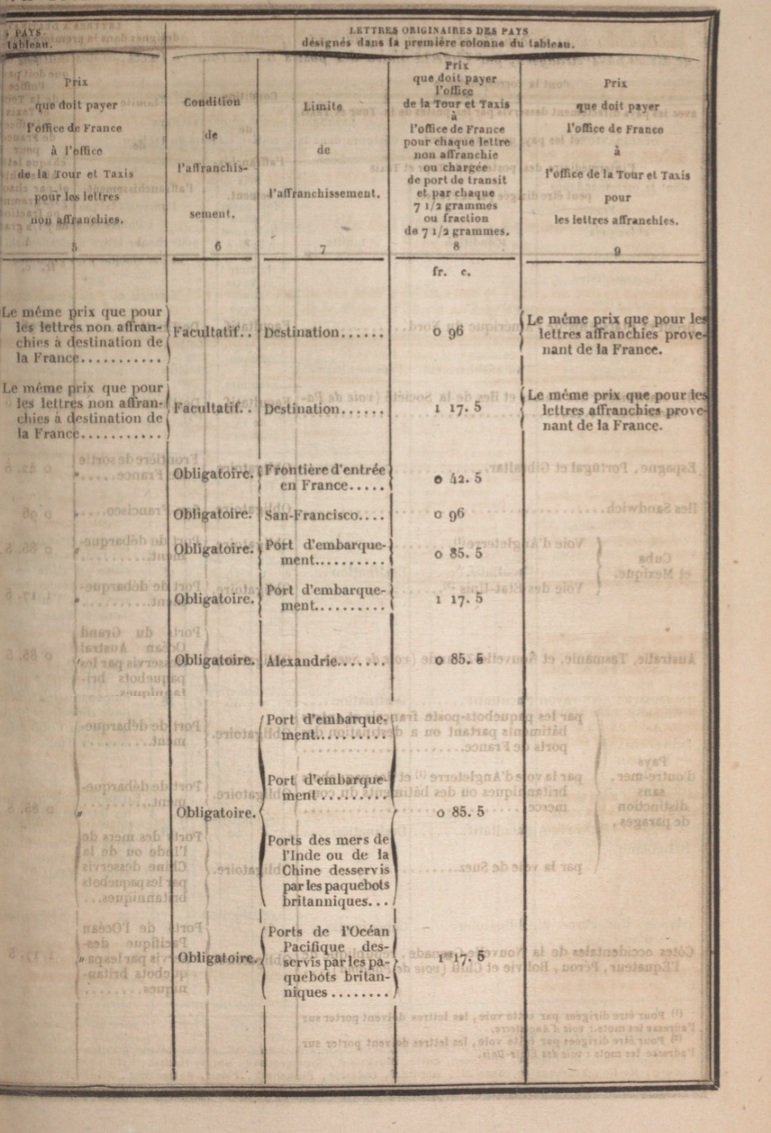 S PAYS
tableau.
LETTRES ORIGINAIRES DES PAYS
désignés dans la première colonne du tableau.
Prix
que doit payer
l'office de France
à l'office
de la Tour et Taxis
pour les lettres
non affranchies.
5
Condition
de
l'affranchis-
sement.
6
Limite
de
l'affranchissement.
7
Prix
que doit payer
l'office
de la Tour et Taxis
à
l'office de France
pour chaque lettre
non affranchie
ou chargée
de port de transit
et par chaque
7 1/2 grammes
ou fraction
de 7 1/2 grammes.
8
Prix
que doit payer
l'office de France
à
l'office de la Tour et Taxis
pour
les lettres affranchies.
9
fr. c.
Le même prix que pour
les lettres non affran-
chies à destination de
la France...........
Facultatif..
Destination......
0 96
Le même prix que pour les
lettres affranchies prove-
nant de la France.
Le même prix que pour
les lettres non affran-
chies à destination de
la France...........
Facultatif..
Destination......
1 17. 5
Le même prix que pour les
lettres affranchies prove-
nant de la France.
"
Obligatoire.
Frontière d'entrée
en France.....
0 42. 5
"
Obligatoire.
San-Francisco....
0 96
"
Obligatoire.
Port d'embarque-
ment..........
0 85. 5
"
Obligatoire.
Port d'embarque-
ment..........
1 17. 5
"
Obligatoire.
Alexandrie.......
0 85. 5
Port d'embarque-
ment..........
Port d'embarque-
ment..........
"
Obligatoire.
0 85. 5
Ports des mers de
l'Inde ou de la
Chine desservis
par les paquebots
britanniques...
"
Obligatoire.
Ports de l'Océan
Pacifique des-
servis par les pa-
quebots britan-
niques ........
1 17. 5